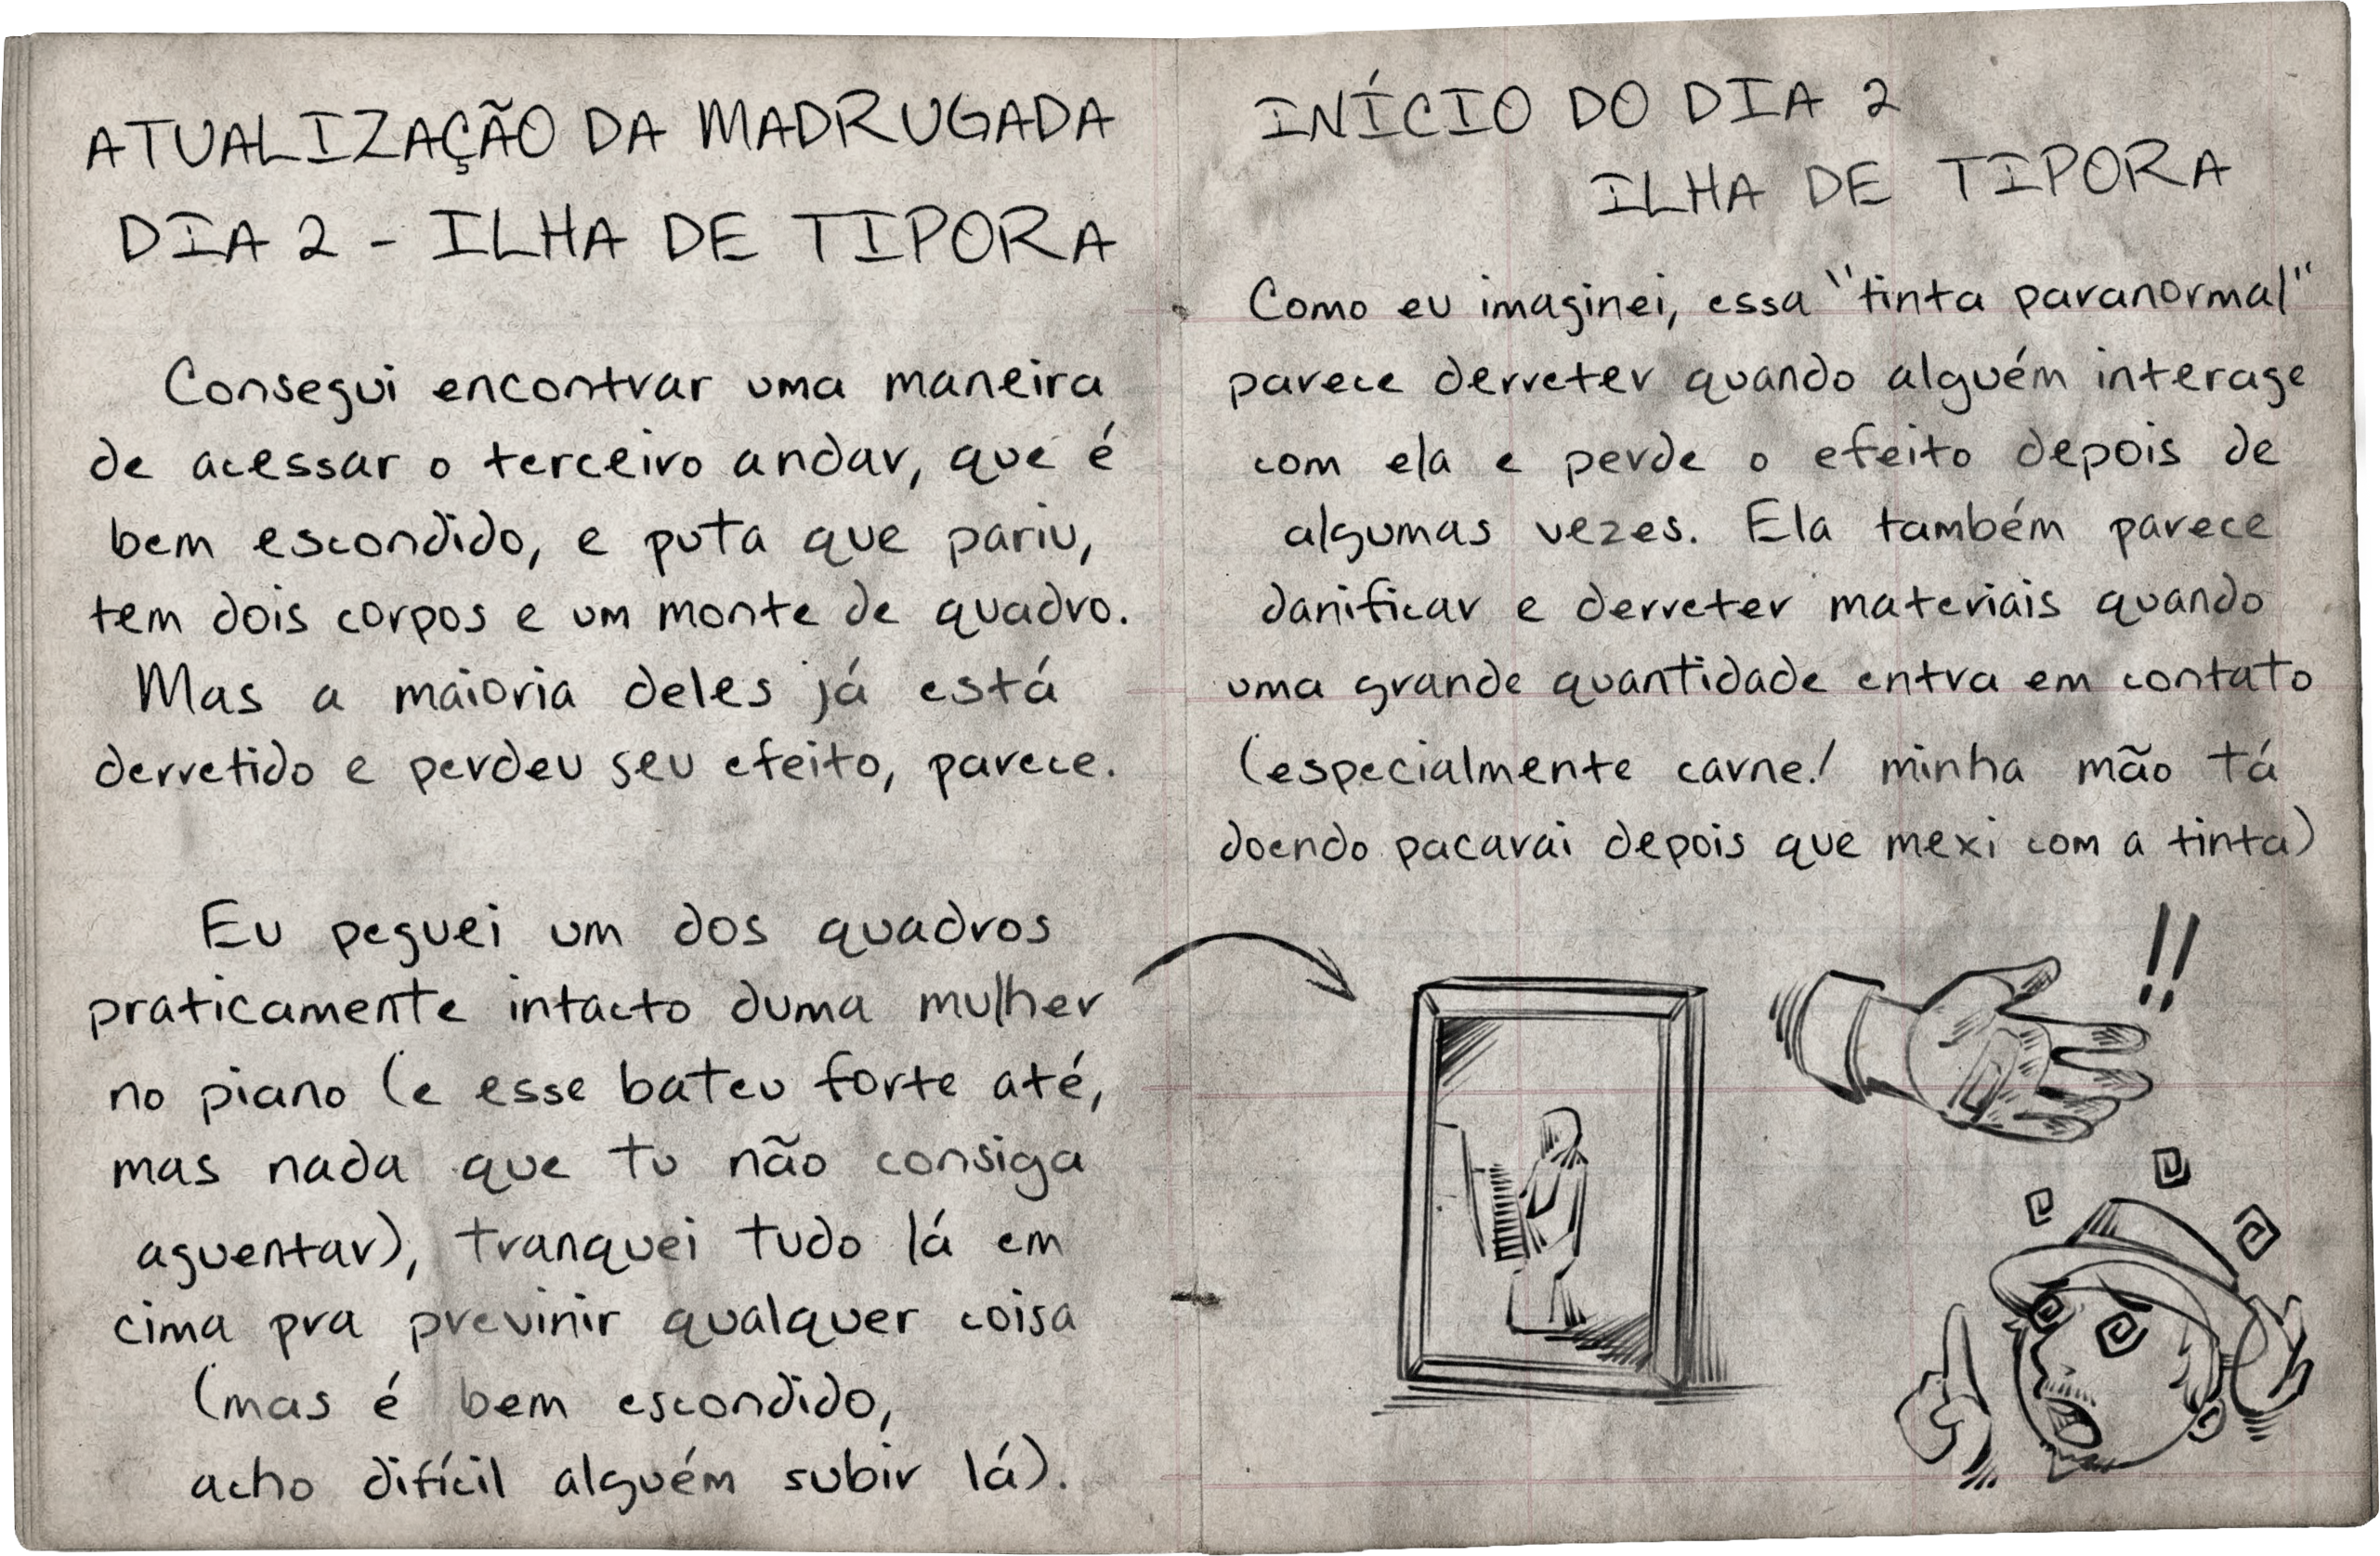 ATUALIZAÇÃO DA MADRUGADA
DIA 2 - ILHA DE TIPORA
Consegui encontrar uma maneira
de acessar o terceiro andar, que é
bem escondido, e puta que pariu,
tem dois corpos e um monte de quadro.
Mas a maioria deles já está
derretido e perdeu seu efeito, parece.
Eu peguei um dos quadros
praticamente intacto duma mulher
no piano (e esse bateu forte até,
mas nada que tu não consiga
aguentar), tranquei tudo lá em
cima pra previnir qualquer coisa
(mas é bem escondido,
acho difícil alguém subir lá).
INÍCIO DO DIA 2
ILHA DE TIPORA
Como eu imaginei, essa "tinta paranormal"
parece derreter quando alguém interage
com ela e perde o efeito depois de
algumas vezes. Ela também parece
danificar e derreter materiais quando
uma grande quantidade entra em contato
(especialmente carne! minha mão tá
doendo pacarai depois que mexi com a tinta)
!!